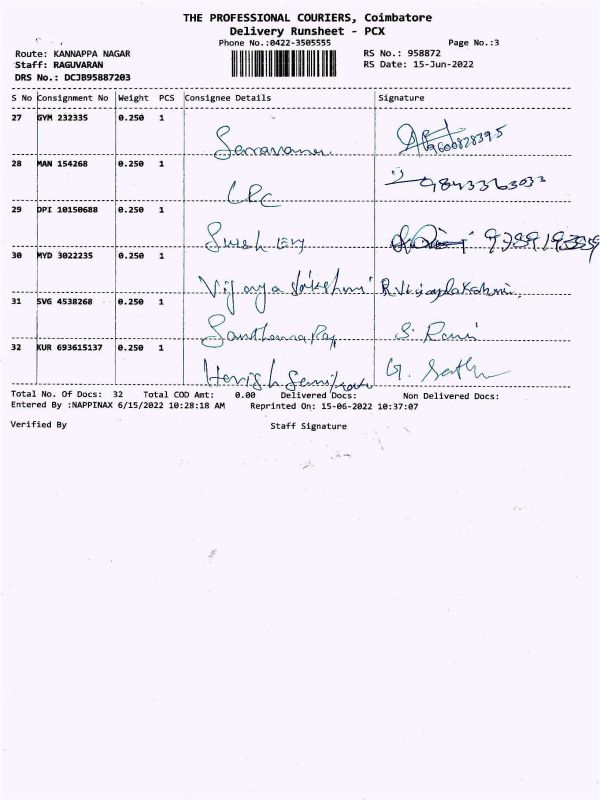 THE PROFESSIONAL COURIERS, Coimbatore
Delivery Runsheet - PCX
Phone No.:0422-3505555 Page No.:3
Route: KANNAPPA NAGAR RS No.: 958872
Staff: RAGUVARAN RS Date: 15-Jun-2022
DRS No.: DCJB95887203
S No Consignment No Weight PCS Consignee Details Signature
27 GYM 232335 0.250 1
Saravanan 9600828395
28 MAN 154268 0.250 1
LPC 9843363033
29 DPI 10150688 0.250 1
Suresh Eng
30 MYD 3022235 0.250 1
Vijaya lakshmi R.Vijayalakshmi
31 SVG 4538268 0.250 1
Santhanaraj S. Rani
32 KUR 693615137 0.250 1
Harish G.
Total No. Of Docs: 32 Total COD Amt: 0.00 Delivered Docs: Non Delivered Docs:
Entered By :NAPPINAX 6/15/2022 10:28:18 AM Reprinted On: 15-06-2022 10:37:07
Verified By Staff Signature